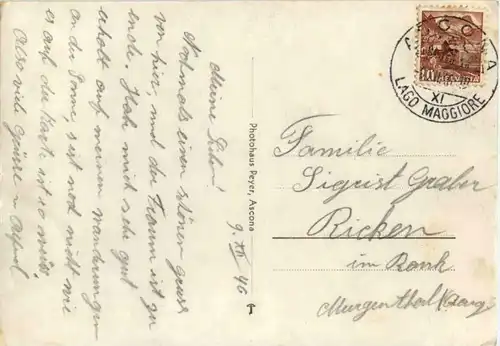 Meine Lieben!
Nochmals einen schönen Gruss
von hier, und der Traum ist zu
Ende. Habe mich sehr gut
erholt auf meinen Wandrungen
an der Sonne, s'ist noch nicht wie
es auf der Karte ist so
Also viele Grüsse
9. XII 46
Photohaus Peyer, Ascona
ASCONA
LAGO MAGGIORE
XI
10
Familie
Sigrist Graber
Ricken
im Bank
Murgenthal (Aarg)